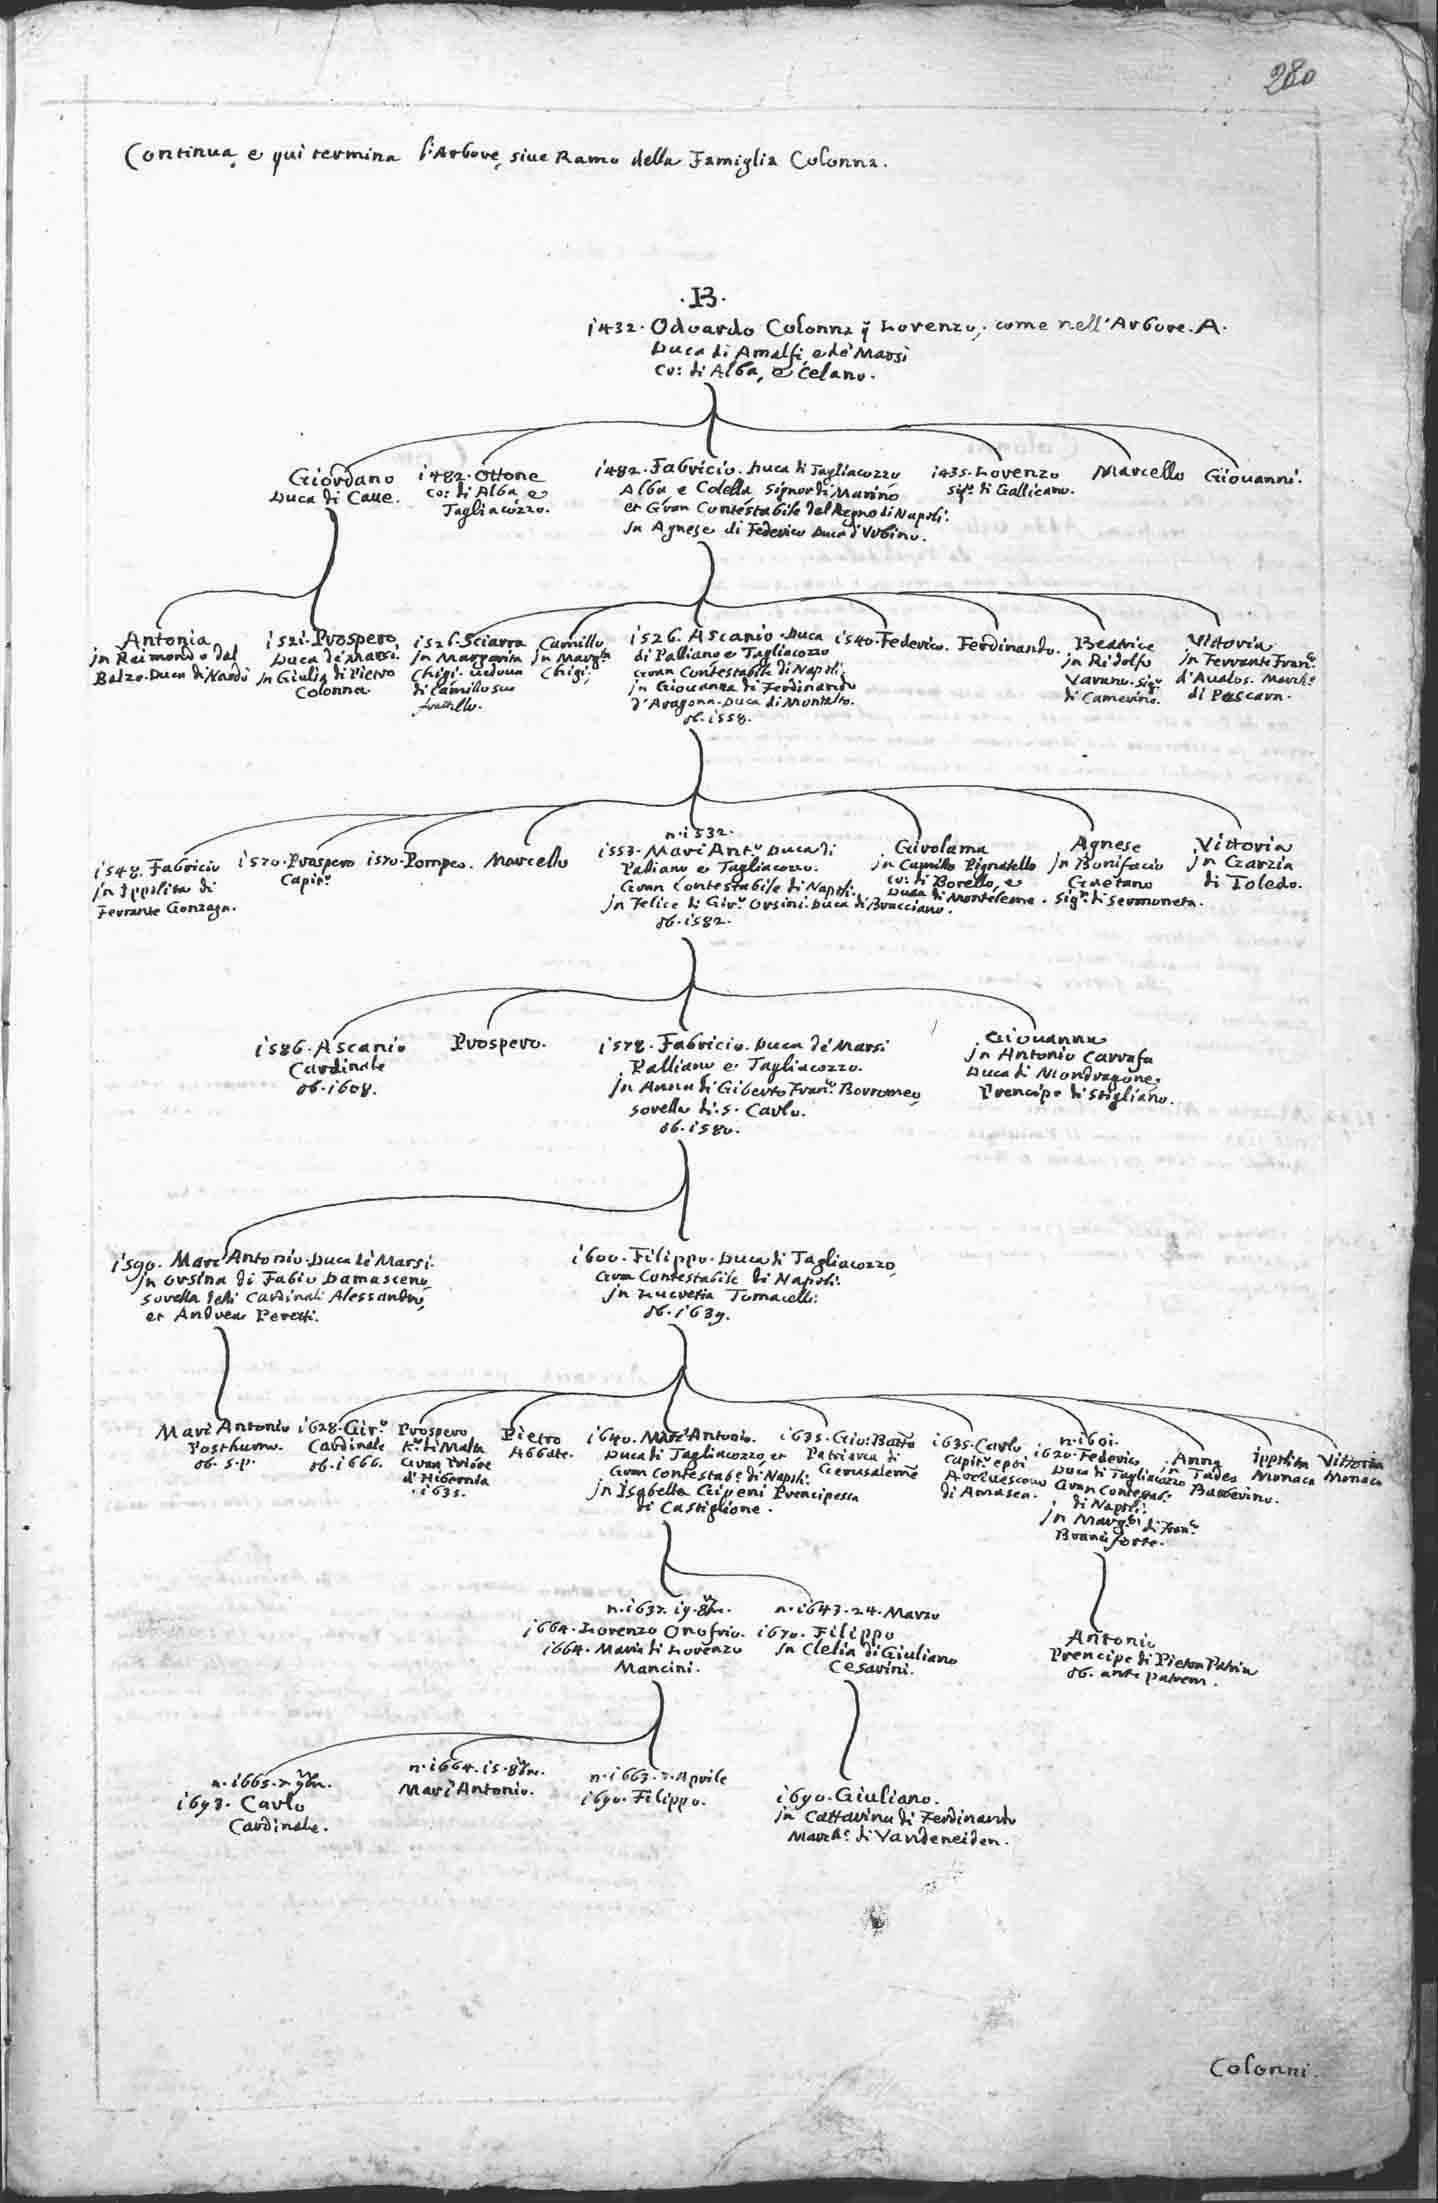 280
Continua, e qui termina l'Arbore, siue Ramo della Famiglia Colonna.
.B.
1432. Odoardo Colonna q̃ Lorenzo, come nell'Arbore. A.
Duca di Amalfi, e de' Marsi
Co: di Alba, e Celano.
Giordano
Duca di Caue.
1482. Ottone
Co: di Alba e
Tagliacozzo.
1482. Fabricio. Duca di Tagliacozzo
Alba e Colella Signor di Marino
et Gran Contestabile del Regno di Napoli.
jn Agnese di Federico Duca d'Vrbino.
1435. Lorenzo
Sigr. di Gallicano.
Marcello
Giouanni.
Antonia
jn Reimondo dal
Balzo. Duca di Nardò
1521. Prospero,
Duca de' Marsi.
jn Giulia di Pietro
Colonna.
1526. Sciarra
jn Margarita
Chigi. uedoua
di Camillo suo
fratello.
Camillo
jn Margta
Chigi.
1526. Ascanio. Duca
di Palliano e Tagliacozzo
Gran Contestabile di Napoli,
jn Giouanna di Ferdinando
d'Aragona. Duca di Montalto.
ob. 1558.
1540. Federico.
Ferdinando.
Beatrice
jn Ridolfo
Varano. Sigr
di Camerino.
Vittoria
jn Ferrante Franco
d'Aualos. Marche
di Pescara.
1548. Fabricio
jn Ippolita di
Ferrante Gonzaga.
1570. Prospero
Capitº
1570. Pompeo.
Marcello
n. 1532.
1553. Marc'Antº Duca di
Palliano e Tagliacozzo.
Gran Contestabile di Napoli.
jn Felice di Girº Orsini. Duca di Bracciano.
ob. 1582.
Girolama
jn Camillo Pignatello
Co: di Borello, e
Duca di Monteleone.
Agnese
jn Bonifacio
Gaetano
Sigr. di Sermoneta.
Vittoria
jn Garzia
di Toledo.
1586. Ascanio
Cardinale
ob. 1608.
Prospero.
1578. Fabricio. Duca de' Marsi
Palliano e Tagliacozzo.
jn Anna di Giberto Franº Borromeo,
sorella di S. Carlo.
ob. 1580.
Giouanna
jn Antonio Carrafa
Duca di Mondragone,
Prencipe di Stigliano.
1590. Marc'Antonio. Duca de' Marsi.
jn Orsina di Fabio Damasceno,
sorella delli Cardinali Alessandro,
et Andrea Peretti.
1600. Filippo. Duca di Tagliacozzo,
Gran Contestabile di Napoli.
jn Lucretia Tomacelli.
ob. 1639.
Marc'Antonio
Posthumo.
ob. s.p.
1628. Girº
Cardinale
ob. 1666.
Prospero
Kr. di Malta
Gran Priore
d'Hibernia
. 1635.
Pietro
Abbate.
1640. Marc'Antonio.
Duca di Tagliacozzo, et
Gran Contestabe di Napoli.
jn Isabella Gioeni Prencipessa
di Castiglione.
1635. Gio: Batta
Patriarca di
Gerusaleme
1635. Carlo,
Capitº e poi
Arciuescouo
di Amasea.
n. 1601.
1620. Federico
Duca di Tagliacozzo
Gran Contestabe
di Napoli.
jn Marga di Franco
Branciforte.
Anna
jn Tadeo
Barberino.
Ippolita
Monaca
Vittoria
Monaca
n. 1637. 19. 8bre.
1664. Lorenzo Onofrio.
1664. Maria di Lorenzo
Mancini.
n. 1643. 24. Marzo
1670. Filippo
jn Clelia di Giuliano
Cesarini.
Antonio
Prencipe di Pietra Patria
ob. ante patrem.
n. 1665. 7. 9bre.
1693. Carlo
Cardinale.
n. 1664. 15. 8bre.
Marc'Antonio.
n. 1663. 7. Aprile
1690. Filippo.
1690. Giuliano.
jn Cattarina di Ferdinando
Marche di Vandeneiden.
Colonni.